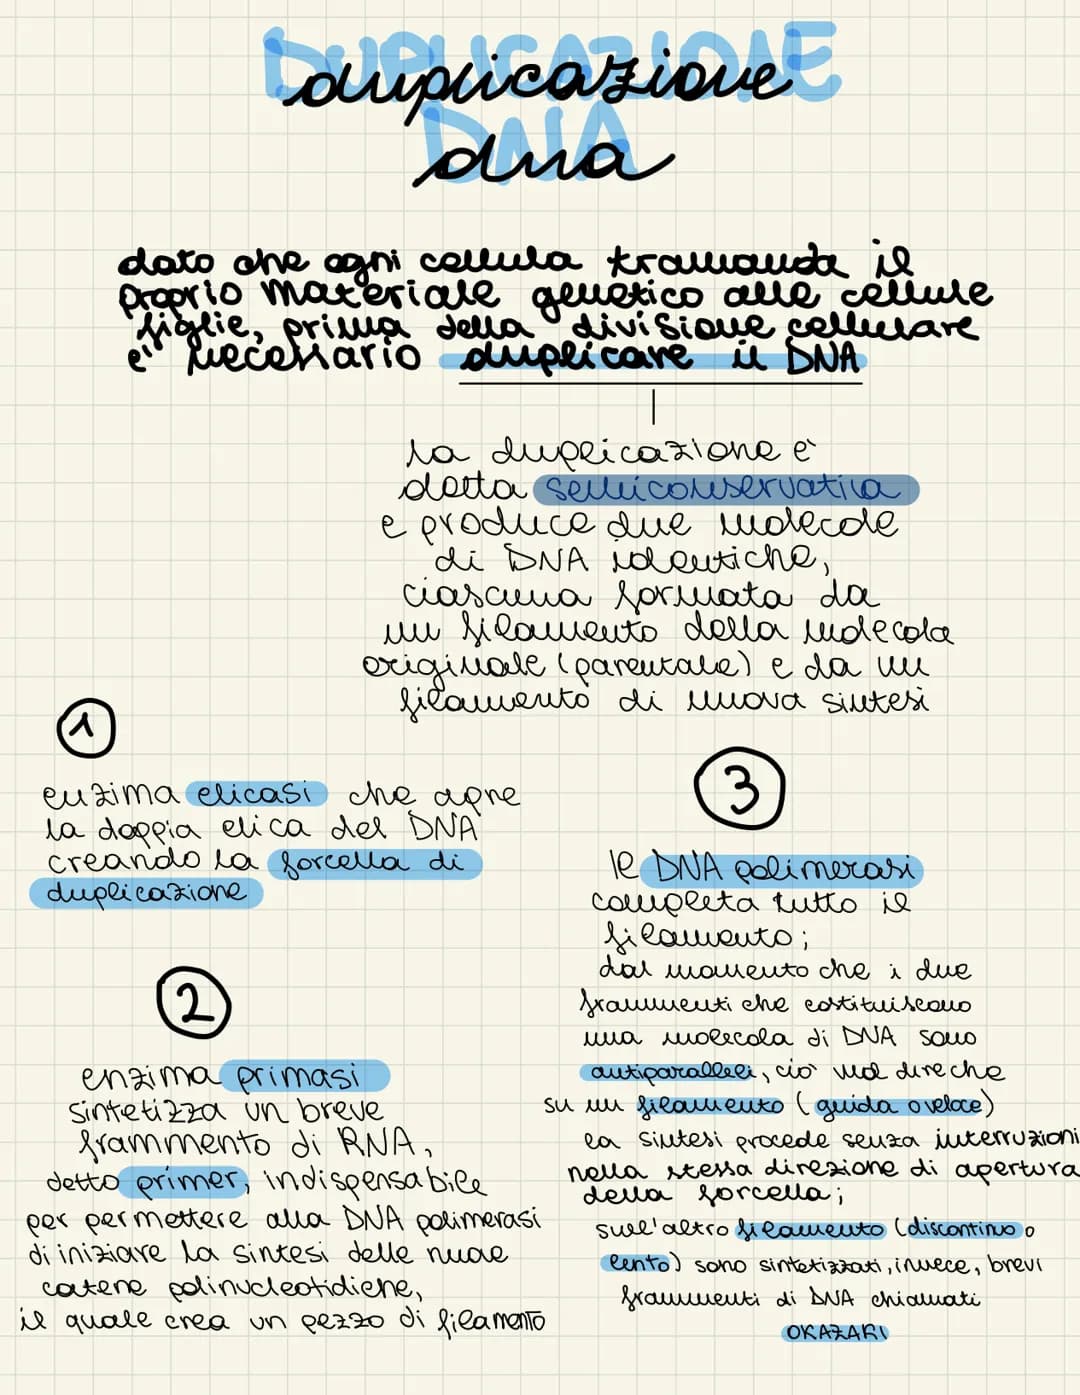 DUPLICAZIONE
duplicazione
DNA
dna
dato che ogni cellula tramanda il
proprio materiale genetico alle cellule
figlie, prima della divisione cellulare
e' necessario duplicare il DNA
la duplicazione è
detta semiconservativa
e produce due molecole
di DNA identiche,
ciascuna formata da
un filamento della molecola
originale (parentale) e da un
filamento di nuova sintesi
1
enzima elicasi che apre
la doppia elica del DNA
creando la forcella di
duplicazione
2
enzima primasi
sintetizza un breve
frammento di RNA,
detto primer, indispensabile
per permettere alla DNA polimerasi
di iniziare la sintesi delle nuove
catene polinucleotidiche,
il quale crea un pezzo di filamento
3
le DNA polimerasi
completa tutto il
filamento;
dal momento che i due
frammenti che costituiscono
una molecola di DNA sono
antiparalleli, ciò vuol dire che
su un filamento (guida o veloce)
la sintesi procede senza interruzioni
nella stessa direzione di apertura
della forcella;
sull'altro filamento (discontinuo o
lento) sono sintetizzati, invece, brevi
frammenti di DNA chiamati
OKAZAKI